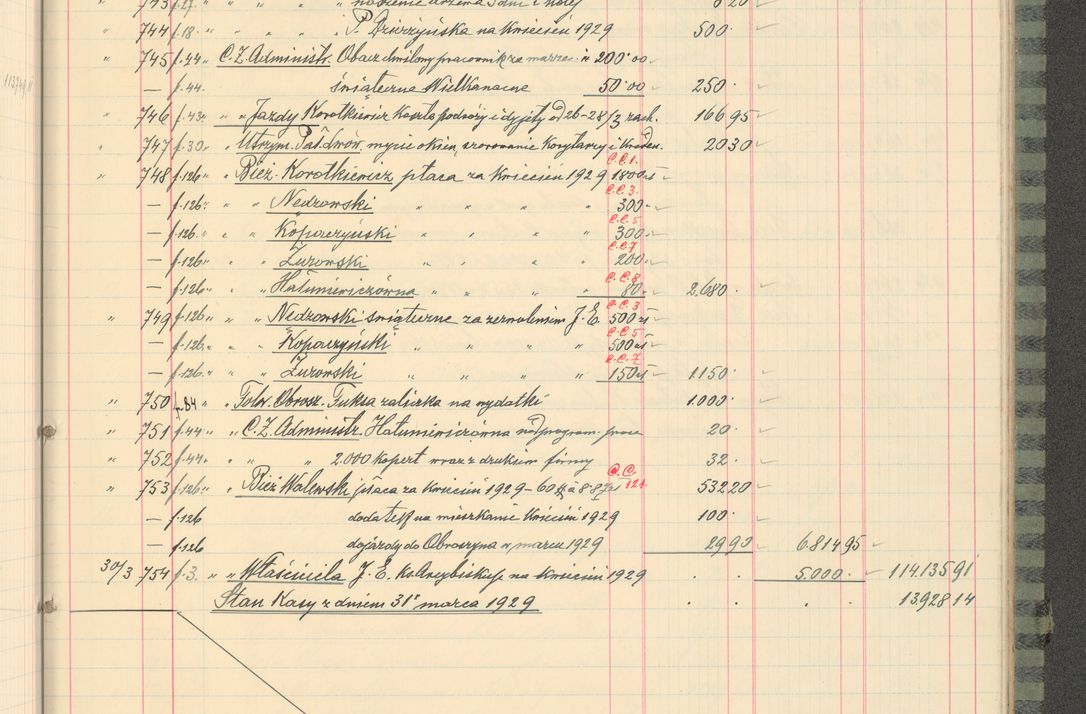 " 743 f.17. " " " " noszenie drzewa 3 dni i nocy 6 20
" 744 f.18. " " " " P. Dzierżyńska na kwiecień 1929 500.
" 745 f.44 " C.Z. Administr. pracownik za marzec 200.00
— f.44. świąteczne Wielkanocne 50.00 250.
" 746 f.43 " " Jazdy Korotkiewicz Koszta podwody i dyjety od 26-28/3 rach. 166 95
" 747 f.30 " Utrzym. Pał. Lwów. mycie okien, szorowanie Korytarzy i 20 30
C.C.1.
" 748 f.126 " Bież. Korotkiewicz płaca za kwiecień 1929 1800
C.C.3.
— f.126 " " Nedzowski " " " " 300
C.C.5
— f.126. " " Kopaczyński " " " " 300
C.C.7
— f.126 " " Żurowski " " " " 200
C.C.8
— f.126 " " Hałuniewiczówna " " " 80. 2.680.
C.C.3
" 749 f.126 " " Nedzowski świąteczne za zezwoleniem J.E. 500
C.C.5
— f.126. " " Kopaczyński " " " " 500
C.C.7.
— f.126. " " Żurowski " " " " 150 1150.
" 750 f.84 " Folw. Obrosz. Fuksa zaliczka na wydatki 1.000.
" 751 f.44 " " C.Z. Administr. Hałuniewiczówna nadprogram. praca 20.
" 752 f.44. " " " 2.000 kopert wraz z drukiem firmy 32.
C.C. 121
" 753 f.126 " Bież Walewski płaca za kwiecień 1929 – 60 à 8.87 532 20
— f.126 dodatek na mieszkanie kwiecień 1929 100.
— f.126 dojazdy do Obroszyna w marcu 1929 29 90 6.814 95
30/3 754 f.3. " " Właściciela J.E. Ks. Arcybiskup na kwiecień 1929 . . 5.000. 114.135 91
Stan Kasy z dniem 31. marca 1929 . . . . 13.928 14